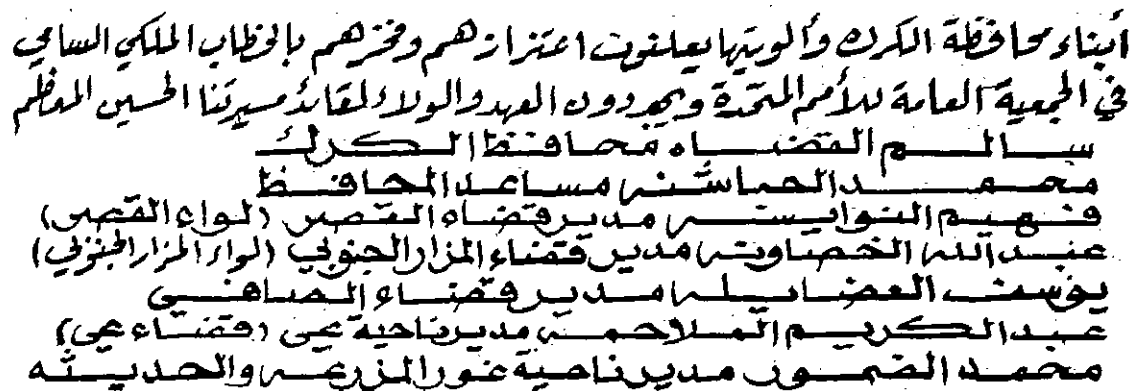 أبناء محافظة الكرك وألويتها يعلنون اعتزازهم وفخرهم بالخطاب الملكي السامي
في الجمعية العامة للأمم المتحدة ويجددون العهد والولاء لقائد مسيرتنا الحسين المعظم
سالم القضاه محافظ الكرك
محمد الحباشنه مساعد المحافظ
فهيم النوايسه مدير قضاء القصر (لواء القصر)
عبدالله الخصاونه مدير قضاء المزار الجنوبي (لواء المزار الجنوبي)
يوسف العضايله مدير قضاء الصافي
عبدالكريم الملاحمه مدير ناحية عي (قضاء عي)
محمد الضمور مدير ناحية غور المزرعه والحديثه